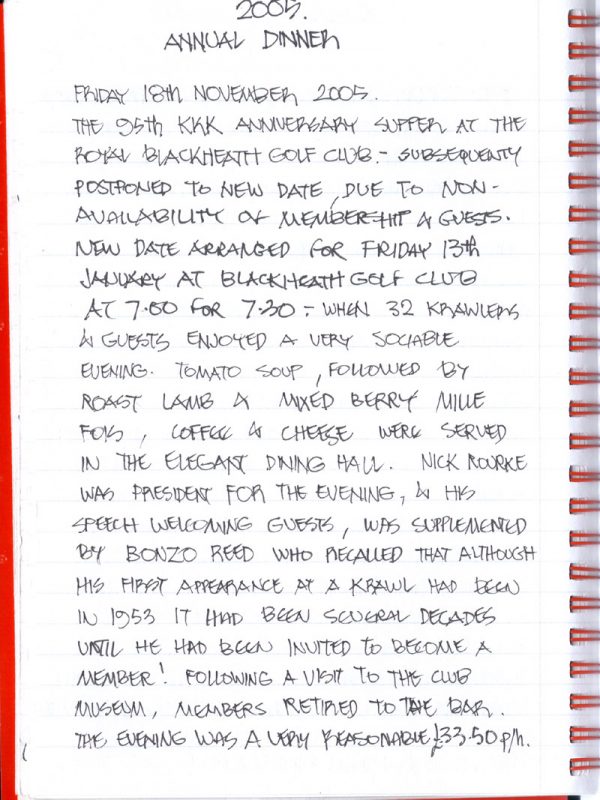 2005.
ANNUAL DINNER
FRIDAY 18th NOVEMBER 2005.
THE 95th KKK ANNIVERSARY SUPPER AT THE
ROYAL BLACKHEATH GOLF CLUB.- SUBSEQUENTY
POSTPONED TO NEW DATE, DUE TO NON-
AVAILABILITY OF MEMBERSHIP & GUESTS.
NEW DATE ARRANGED FOR FRIDAY 13th
JANUARY AT BLACKHEATH GOLF CLUB
AT 7.00 FOR 7.30 :- WHEN 32 KRAWLERS
& GUESTS ENJOYED A VERY SOCIABLE
EVENING. TOMATO SOUP, FOLLOWED BY
ROAST LAMB & MIXED BERRY MILLE
FOIS, COFFEE & CHEESE WERE SERVED
IN THE ELEGANT DINING HALL. NICK ROURKE
WAS PRESIDENT FOR THE EVENING, & HIS
SPEECH WELCOMING GUESTS, WAS SUPPLEMENTED
BY BONZO REED WHO RECALLED THAT ALTHOUGH
HIS FIRST APPEARANCE AT A KRAWL HAD BEEN
IN 1953 IT HAD BEEN SEVERAL DECADES
UNTIL HE HAD BEEN INVITED TO BECOME A
MEMBER! FOLLOWING A VISIT TO THE CLUB
MUSEUM, MEMBERS RETIRED TO THE BAR.
THE EVENING WAS A VERY REASONABLE £33.50 p/h.